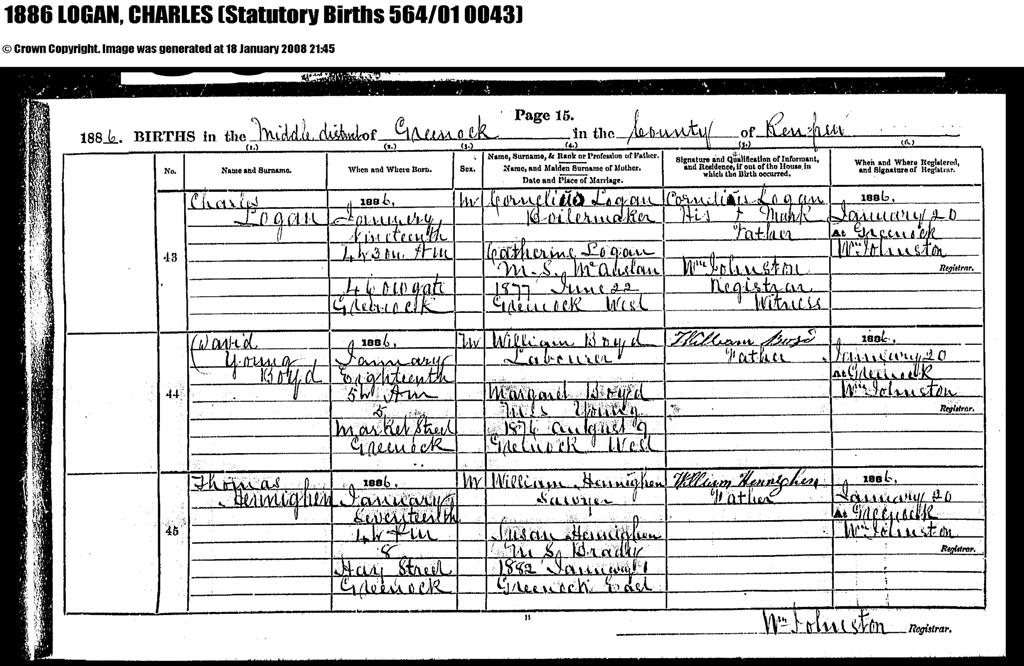 1886 LOGAN, CHARLES (Statutory Births 564/01 0043)
© Crown Copyright. Image was generated at 18 January 2008 21:45
Page 15.
1886. BIRTHS in the Middle district of Greenock in the County of Renfrew
(1.) (2.) (3.) (4.) (5.) (6.)
No.
Name and Surname.
When and Where Born.
Sex.
Name, Surname, & Rank or Profession of Father.
Name, and Maiden Surname of Mother.
Date and Place of Marriage.
Signature and Qualification of Informant,
and Residence, if out of the House in
which the Birth occurred.
When and Where Registered,
and Signature of Registrar.
43
Charles
Logan
1886.
January
Nineteenth
4h 30m AM
Greenock
M
Cornelius Logan
Boilermaker
Catherine Logan
M.S. McAuslan
1877 June 22
Greenock West
Cornelius Logan
His + Mark
Father
Wm Johnston
Registrar
Witness
1886.
January 20
At Greenock
Wm Johnston
Registrar.
44
David
Young
Boyd
1886.
January
Eighteenth
5h AM
5
Market Street
Greenock
M
William Boyd
Labourer
Margaret Boyd
M.S. Young
1876 August 9
Greenock West
William Boyd
Father
1886.
January 20
At Greenock
Wm Johnston
Registrar.
45
Thomas
Hennighen
1886.
January
Seventeenth
4h PM
8
Hay Street
Greenock
M
William Hennighen
Sawyer
Susan Hennighen
M.S. Brady
1882 January 1
Greenock East
William Hennighen
Father
1886.
January 20
At Greenock
Wm Johnston
Registrar.
11
Wm Johnston Registrar.